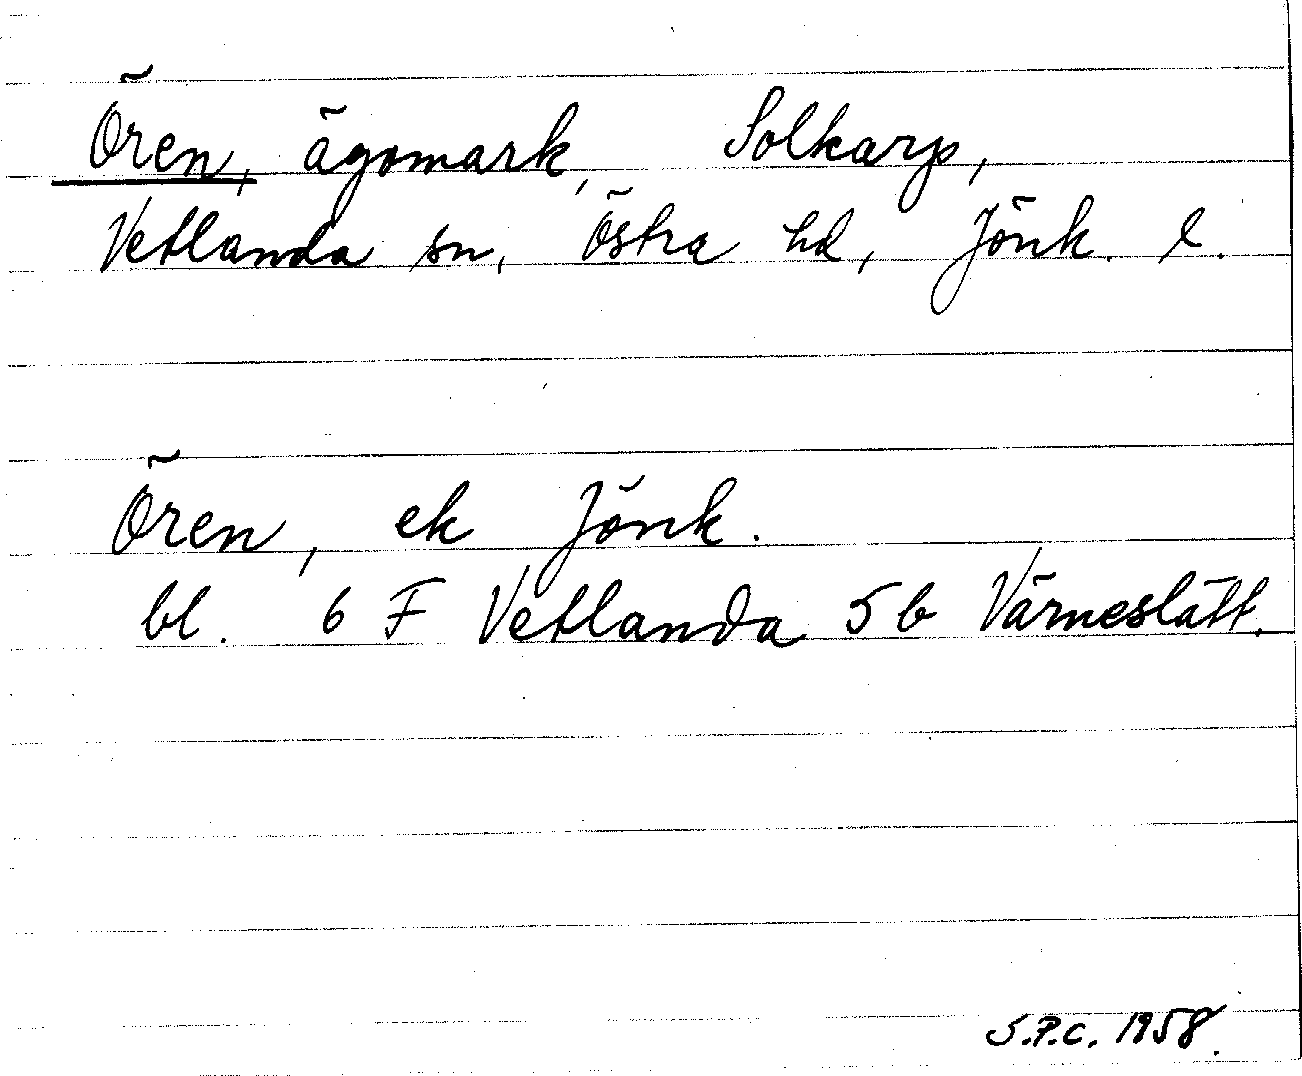 Ören, ägomark, Solkarp,
Vetlanda sn, Östra hd, Jönk. l.
Ören, ek Jönk.
bl. 6 F Vetlanda 5 b Värneslätt.
S.P.C. 1958.